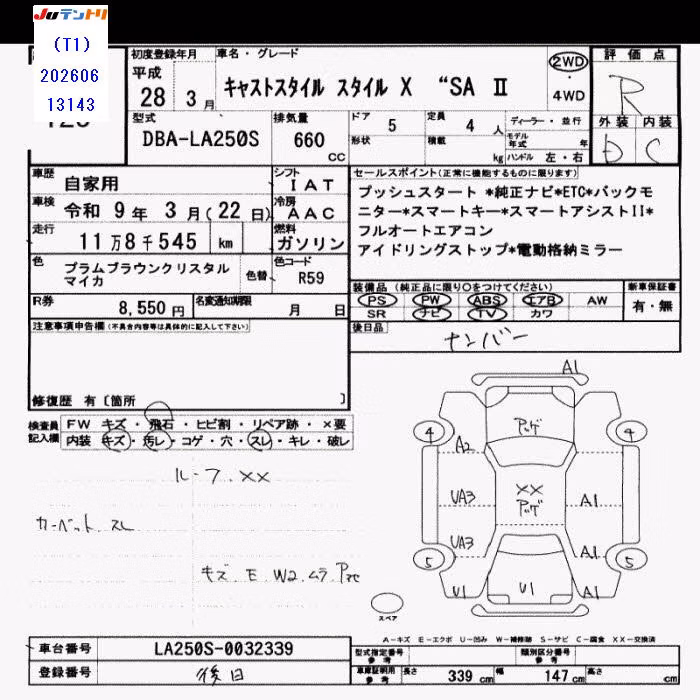 JUテントリ
(T1)
202606
13143
初度登録年月
車名・グレード
平成
28 年 3 月
キャストスタイル スタイル X “SA II
2WD
・
4WD
評価点
R
外装 内装
D C
型式
DBA-LA250S
排気量
660
CC
ドア
5
形状
定員
4 人
積載
kg
ディーラー・並行
モデル
年式 年
ハンドル 左・右
車歴
自家用
シフト
I AT
車検
令和 9 年 3 月 (22 日)
冷房
A AC
走行
11 万 8 千 545 km
燃料
ガソリン
色
プラムブラウンクリスタル
マイカ
色替
色コード
R59
R券
8,550 円
名変通知期限
月 日
セールスポイント(正常に機能するものに限ります)
プッシュスタート *純正ナビ*ETC*バックモ
ニター*スマートキー*スマートアシストII*
フルオートエアコン
アイドリングストップ*電動格納ミラー
装備品 (純正品に限り○をつけてください)
新車保証書
PS PW ABS エアB AW
SR ナビ TV カワ
有・無
後日品
ナンバー
注意事項申告欄(不具合内容等は具体的に記入して下さい)
修復歴 有〔箇所 〕
検査員
記入欄
FW キズ・飛石・ヒビ割・リペア跡・×要
内装 キズ・汚レ・コゲ・穴・スレ・キレ・破レ
ルーフ XX
カーペット スレ
キズ E W2 ムラ
A1
アッゲ
4
4
A2
UA3
XX
アッゲ
A1
UA3
A1
5
5
U1
U1
A1
スペア
A－キズ E－エクボ U－凹み W－補修跡 S－サビ C－腐食 XX－交換済
車台番号
LA250S-0032339
登録番号
後日
型式指定番号
参考
類別区分番号
参考
車庫証明用
参考
長さ
339 cm
幅
147 cm
高さ
cm